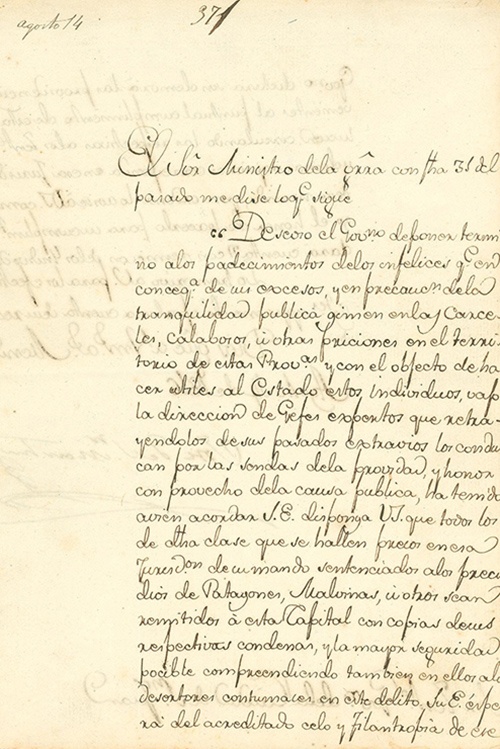 agosto 14
37
El Sõr Ministro dela grrã con fha 31 del
pasado me dise loq.e sigue
"Deseoso el Gov.no deponer termi
no alos padecimientos delos infelices q.e en
conceq.a de sus excesos, y en precauc.n dela
tranquilidad publica gimen en las Carce
les, calabosos, ù otras priciones en el terri
torio de estas Prov.as y con el objecto de ha
cer utiles al Estado éstos individuos, vajo
la direccion de Gefes expertos que retra
yendolos de sus pasados extravios los condu
can por las sendas dela providad, y honor
con provecho dela causa publica, ha tenido
avien acordar S.E. disponga VS. que todos los
de dha clase que se hallen presos en esa
Jurisd.on de su mando sentenciados alos preci
dios de Patagones, Malvinas, ù otros sean
remitidos à esta Capital con copias de sus
respectivas condenas, y la mayor seguridad
pocible compreendiendo tambien en ellos alos
desertores contumaces en este delito, Su E. espe
ra del acreditado celo y filantropia de ese